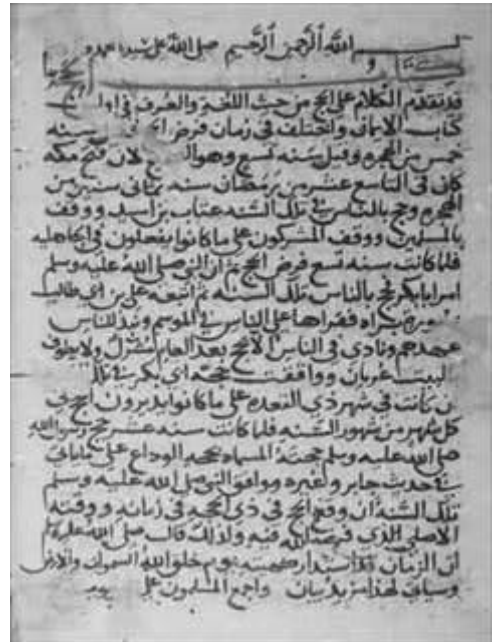 بسم الله الرحمن الرحيم صلى الله على سيدنا محمد و
كتاب الحج
قد تقدم الكلام على الحج من حيث اللغة والعرف في اول
كتاب الايمان واختلف في زمان فرض الحج فقيل سنه
خمس من الهجره وقيل سنه تسع وهو لان فتح مكه
كان في التاسع عشر من رمضان سنه ثماني سنين من
الهجره وحج بالناس في تلك السنه عتاب بن اسيد ووقف
بالمسلمين ووقف المشركون على ما كانوا يفعلون في الجاهليه
فلما كانت سنه تسع فرض الحج ثم ان النبي صلى الله عليه وسلم
امر ابا بكر فحج بالناس تلك السنه ثم اتبعه علي بن ابي طالب
براه فقراها على الناس في الموسم ونبذ للناس
عهدهم ونادى في الناس الا يحج بعد العام مشرك ولا يطوف
بالبيت عريان ووافقت حجه ابي بكر في تلك
ان كانت في شهر ذي القعده على ما كانوا يديرون الحج في
كل شهر من شهور السنه فلما كانت سنه عشر حج رسول الله
صلى الله عليه وسلم حجته المسماه بحجه الوداع على ما ياتي
في حديث جابر وغيره ووافق النبي صلى الله عليه وسلم
تلك السنه ان وقع الحج في ذي الحجه في زمانه ووقته
الاصلي الذي فرضه الله فيه ولذلك قال صلى الله عليه وسلم
ان الزمان قد استدار كهيئته يوم خلق الله السموات والارض
وسياتي لهذا مزيد بيان واجمع المسلمون على